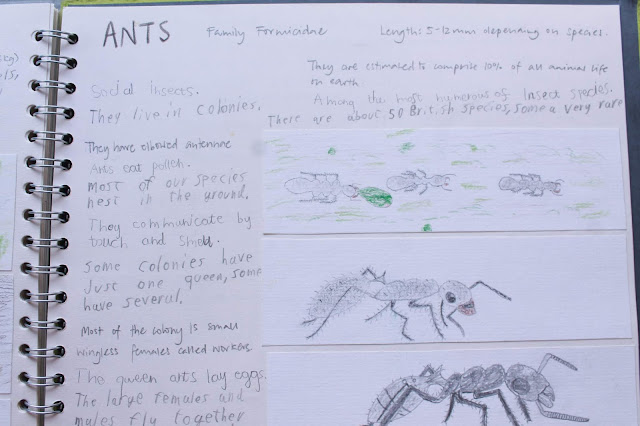 ANTS Family Formicidae Length: 5-12mm depending on species.
They are estimated to comprise 10% of all animal life
on earth
Social insects.
Among the most numerous of Insect species.
They live in colonies.
There are about 50 British species, some a very rare
They have elbowed antennae
Ants eat pollen.
Most of our species
nest in the ground.
They communicate by
touch and smell.
Some colonies have
just one queen, some
have several.
Most of the colony is small
wingless females called workers.
The queen ants lay eggs.
The large females and
males fly together